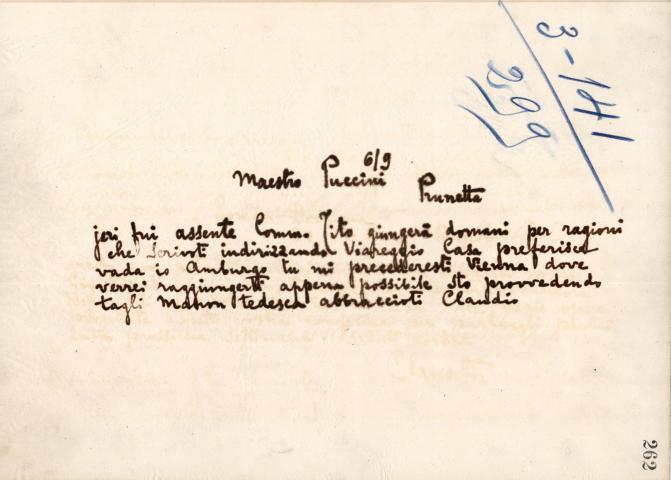 3-141
299
6/9
Maestro Puccini Prunetta
jeri fui assente Comm. Tito giungerà domani per ragioni
che scrivoti indirizzando Viareggio Casa preferisce
vada io Amburgo tu mi precederesti Vienna dove
verrei raggiungerti appena possibile sto provvedendo
tagli Manon tedesca abbraccioti Claudio
262